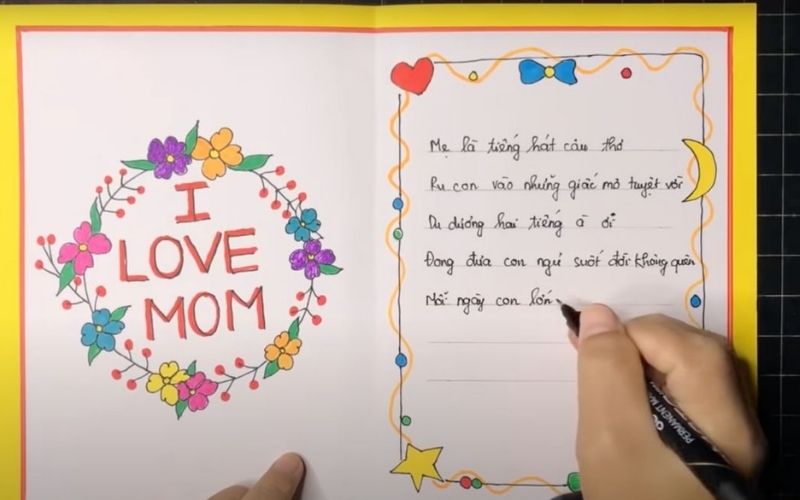 I
LOVE
MOM
Mẹ là tiếng hát câu thơ
Ru con vào những giấc mơ tuyệt vời
Du dương hai tiếng à ơi
Đong đưa con ngủ suốt đời không quên
Mỗi ngày con lớn
PERMANENT MA